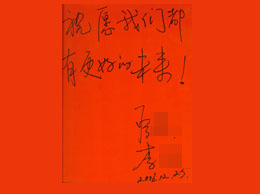 祝愿我们都
有更好的未来！
李
2006.12.25.